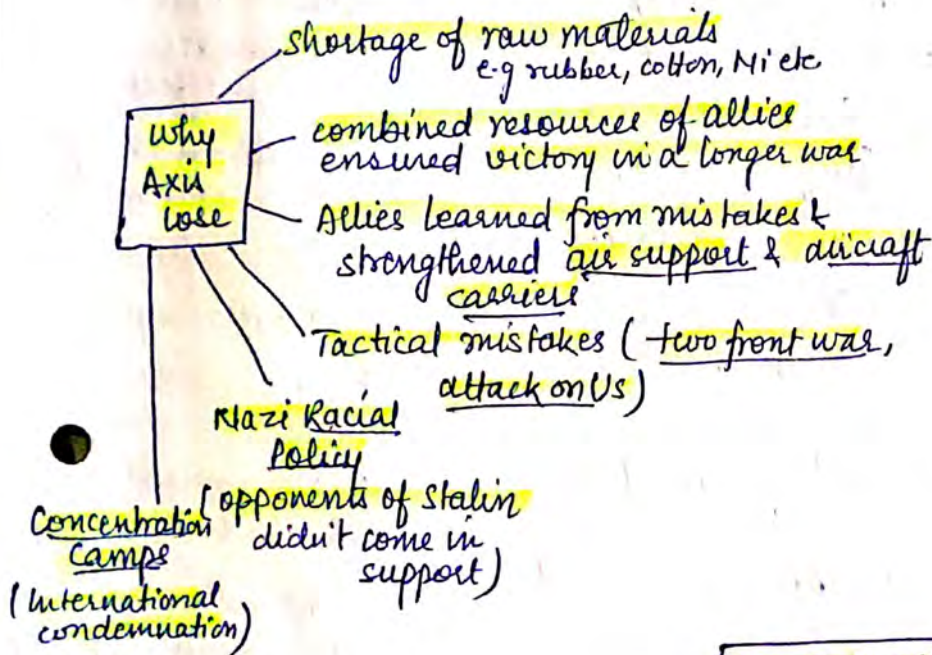 shortage of raw materials
e.g rubber, cotton, Ni etc
Why
Axis
lose
combined resources of allies
ensured victory in a longer war
Allies learned from mistakes &
strengthened air support & aircraft
carriers
Tactical mistakes (two front war,
attack on US)
Nazi Racial
Policy
(opponents of Stalin
didn't come in
support)
Concentration
Camps
(International
condemnation)